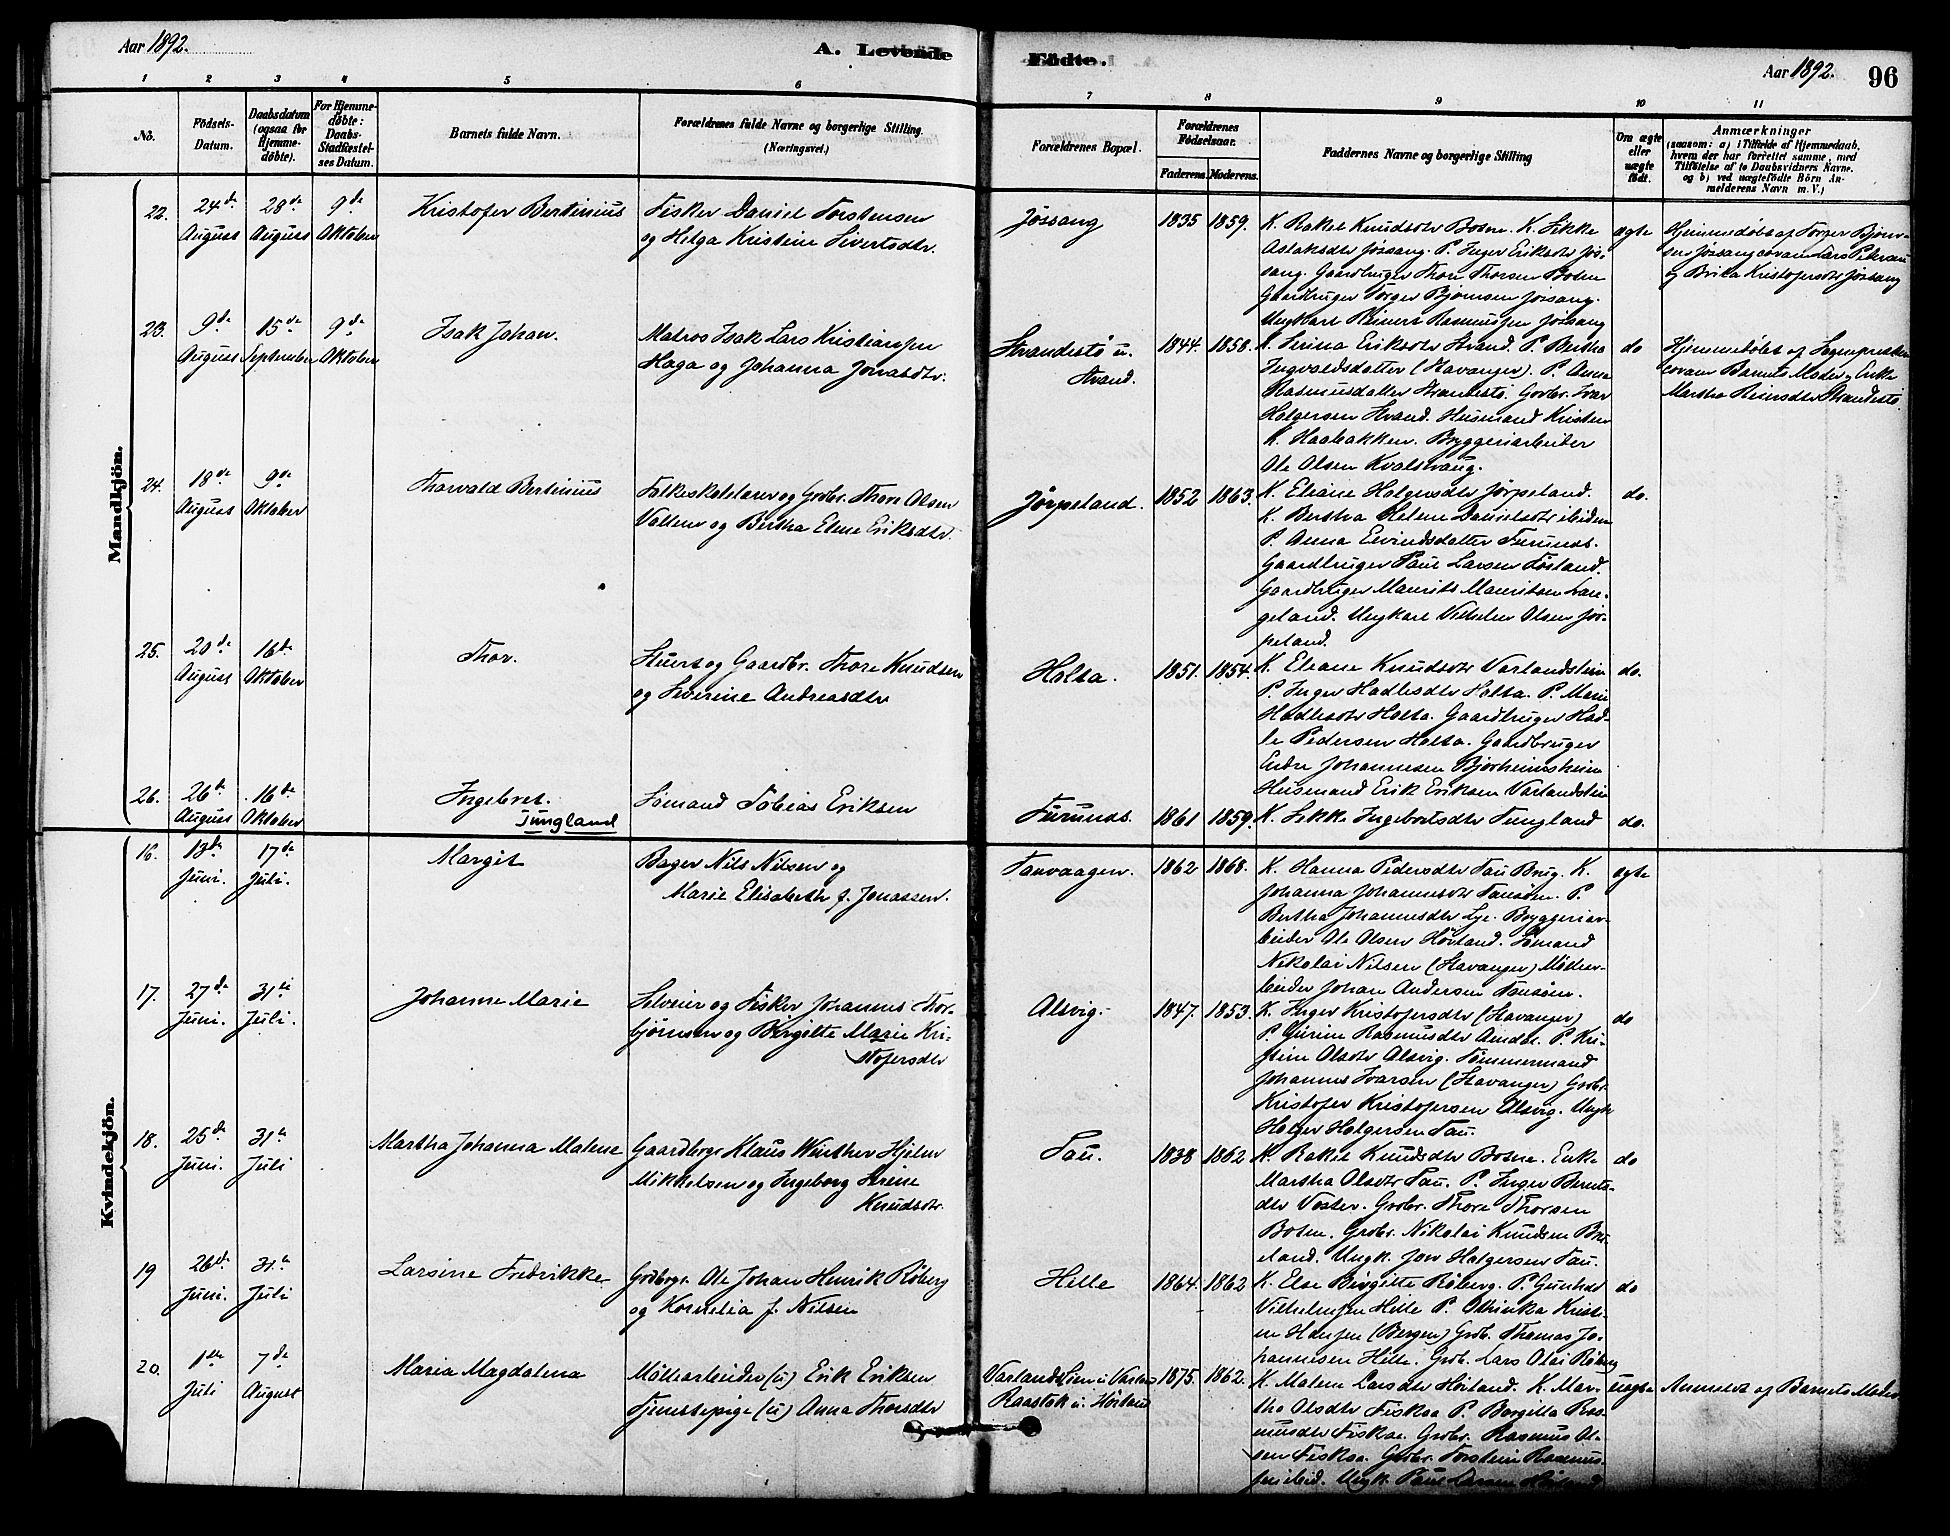 Aar 1892.
A. Levende
Födte.
Aar 1892.
96
1
2
3
4
5
6
7
8
9
10
11
No.
Födsels-
Datum.
Daabsdatum
(ogsaa for
Hjemme-
döbte).
For Hjemme-
döbte:
Daabs-
Stadfæstel-
ses Datum.
Barnets fulde Navn.
Forældrenes fulde Navne og borgerlige Stilling.
(Næringsvei.)
Forældrenes Bopæl.
Forældrenes
Födselsaar.
Faderens.
Moderens.
Faddernes Navne og borgerlige Stilling
Om ægte
eller
uægte
födt.
Anmærkninger
(saasom: a) i Tilfælde af Hjemmedaab,
hvem der har forrettet samme, med
Tilföielse af to Daabsvidners Navne.
og b) ved uægtefödte Börn An-
melderens Navn m. V.)
Mandkjön.
22.
24de
August
28de
August
9de
Oktober
Kristofer Bertinius
Fisker Daniel Torstensen
og Helga Kristine Sivertsdtr.
Jøssang
1835
1859.
K. Rakel Knudsdtr Botne. K. Sikke
Aslaksdtr Jøssang. P. Inger Eriksdtr Jøs-
sang. Gaardbruger Thore Thorsen Botne
Gaardbruger Torger Bjørnsen Jøssang.
Ungkarl Reinert Rasmussen Jøssang
ægte
Hjemmedøbt af Torger Bjørn-
sen Jøssang covam Lars Petersen
og Brita Kristofersdtr Jøssang
23.
9de
August
15de
September
9de
Oktober
Isak Johan.
Matros Isak Lars Kristiansen
Haga og Johanna Jonasdtr.
Strandestø u.
Strand.
1844.
1858.
K. Serina Eriksdtr Strand. P. Bertha
Ingvaldsdatter (Stavanger). P. Anna
Rasmusdatter Strandestø. Gaardbr. Ivar
Holgersen Strand. Husmand Kristen
K. Haabakken. Bryggeriarbeider
Ole Olsen Kvalsvaug.
do
Hjemmedøbt af Sognepresten
covam Barnets Moder og Enke
Martha Reiersdtr Strandestø.
24.
18de
August
9de
Oktober
Thorvald Bertinius
Folkeskolelærer og Grdbr. Thore Olsen
Valten og Bertha Elene Eriksdtr.
Jørpeland.
1852
1863.
K. Eliane Holgersdtr Jørpeland.
K. Bertha Helene Danielsdtr ibidem
P. Anna Eivindsdatter Furunes.
Gaardbruger Paul Larsen Fosland.
Gaardbruger Maurits Mauritsen Lan-
geland. Ungkarl Vilhelm Olsen Jør-
peland.
do.
25.
20de
August
16de
Oktober
Thor.
Stuert og Gaardbr. Thore Knudsen
og Severine Andreasdtr
Holta.
1851.
1854.
K. Eliane Knudsdtr Varlandstein
P. Inger Hadlesdtr Holta. P. Marie
Hadlesdtr Holta. Gaardbruger Had-
le Pedersen Holta. Gaardbruger
Endre Johannesen Bjørheimsheim
Husmand Erik Eriksen Varlandstein
do.
26.
26de
August
16de
Oktober
Ingebret.
Tungland
Sømand Tobias Eriksen
Furunes.
1861
1859.
K. Sikke Ingebretsdtr Tungland
do.
Kvindekjön.
16.
13de
Juni.
17de
Juli.
Margit
Bager Nils Nilsen og
Marie Elisabeth f. Jonassen.
Tauvaagen.
1862
1868.
K. Hanna Pedersdtr Tau Brug. K.
Johanna Johannesdtr Tauøen. P.
Bertha Johannesdtr Lye. Bryggeriar-
beider Ole Olsen Hørland. Sømand
Nikolai Nilsen (Stavanger) Møllear-
beider Johan Andersen Tauøen.
ægte
17.
27de
Juni.
31te
Juli.
Johanne Marie
Selveier og Fisker Johannes Thor-
bjørnsen og Birgitte Marie Kri-
stofersdtr
Alsvig.
1847.
1853.
K. Inger Kristofersdtr (Stavanger)
P. Gurine Rasmusdtr Amdal. P. Kri-
stine Olsdtr Alsvig. Tømmermand
Johannes Ivarsen (Stavanger) Grdbr.
Kristofer Kristofersen Alsvig. Ungk
Holger Holgersen Tau.
do
18.
25de
Juni.
31te
Juli
Martha Johanna Malene
Gaardbrgr Klaus Winther Hjelm
Mikkelsen og Ingeborg Serine
Knudsdtr.
Tau.
1838
1862
K. Rakel Knudsdtr Botne. Enke
Martha Olsdtr Tau. P. Inger Bernts-
dtr Voster. Grdbr. Thore Thorsen
Botne. Grdbr. Nikolai Knudsen Bre-
eland. Ungk. Jon Holgersen Tau.
do
19
26de
Juni.
31te
Juli
Larsine Fredrikke
Grdbrgr. Ole Johan Henrik Røberg
og Kornelia f. Nilsen
Helle
1864.
1862
K. Else Birgitte Røberg. P. Gunhild
Vilhelmsen Hille P. Othinka Kristi-
ne Hansen (Bergen) Grdb. Thomas Jo-
hannesen Hille. Grdb. Lars Olai Røberg
do
20.
1ste
Juli
7de
August
Maria Magdalena
Møllearbeider (u) Erik Eriksen
Tjenestepige (u) Anna Thorsdtr
Varlandstein u Varland
Raastak u. Hørland
1875.
1862.
K. Malene Larsdtr Hørland. K. Mar-
tha Olsdtr Fiskaa P. Borgilla Ras-
musdtr Fiskaa. Grdbr. Rasmus Ol-
sen Fiskaa. Grdbr. Torstein Rasmus-
sen ibid. Ungk. Paul Larsen Hørland
uægte
Anmeldt af Barnets Moder